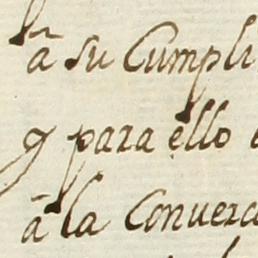 â su Cumpli
y para ello
â la Conuerc